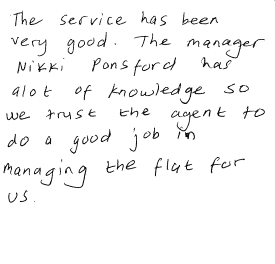 The service has been
very good. The manager
Nikki Ponsford has
alot of knowledge so
we trust the agent to
do a good job in
managing the flat for
us.